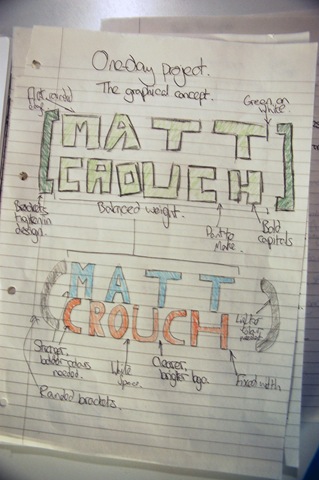 One-day project.
The graphical concept.
Green on
white
MATT
CROUCH
Brackets
design
Balanced weight.
Bold
capitals
MATT
CROUCH
Stronger,
bolder colours
needed.
White
space
Cleaner,
brighter logo.
Fixed width
Rounded brackets.